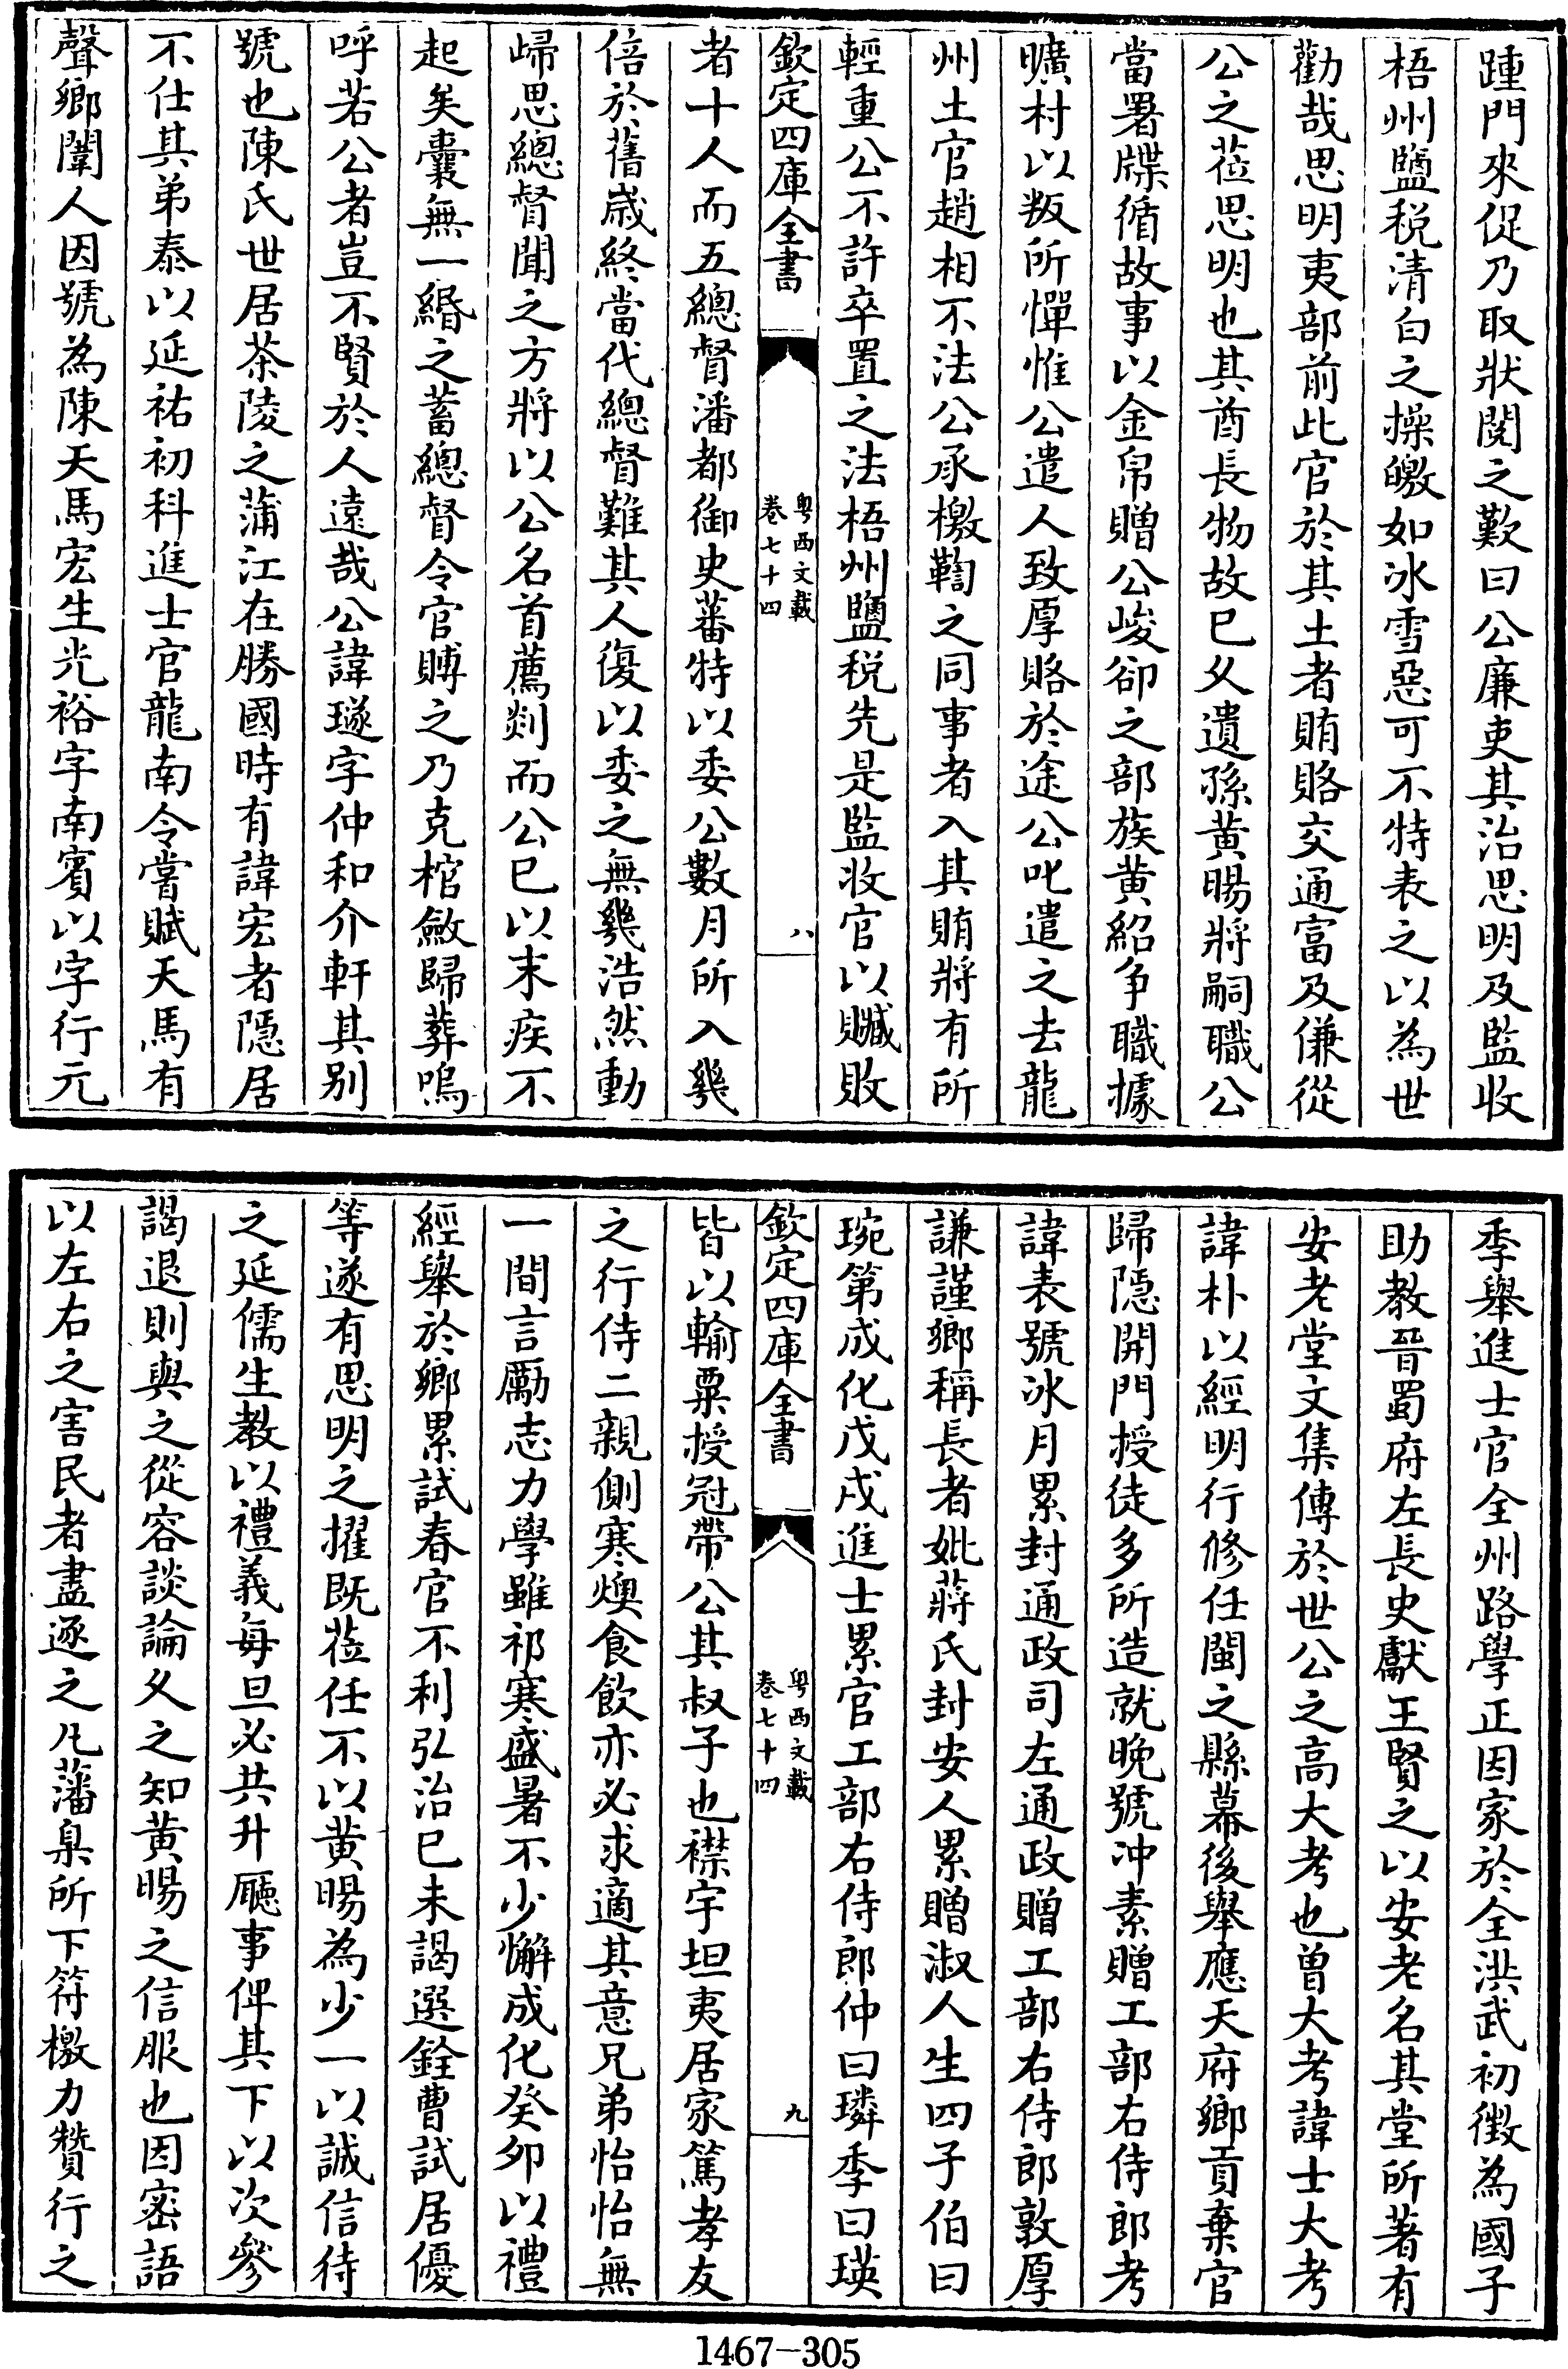 踵門來促乃取狀閱之歎曰公廉吏其治思明及監收
梧州鹽税清白之操皦如冰雪惡可不特表之以為世
勸哉思明夷部前此官於其土者賄賂交通富及傔從
公之蒞思明也其酋長物故已久遺孫黄暘將嗣職公
當署牒循故事以金帛贈公峻卻之部族黄紹争職據
曠村以叛所憚惟公遣人致厚賂於途公叱遣之去龍
州土官趙相不法公承檄鞫之同事者入其賄將有所
輕重公不許卒置之法梧州鹽税先是監收官以贓敗
欽定四庫全書
粤西文載
卷七十四
八
者十人而五總督潘都御史蕃特以委公數月所入幾
倍於舊歳終當代總督難其人復以委之無幾浩然動
歸思總督聞之方將以公名首薦剡而公已以末疾不
起矣囊無一緡之蓄總督令官賻之乃克棺斂歸葬嗚
呼若公者豈不賢於人遠哉公諱璲字仲和介軒其别
號也陳氏世居茶陵之蒲江在勝國時有諱宏者隱居
不仕其弟泰以延祐初科進士官龍南令嘗賦天馬有
聲鄉闈人因號為陳天馬宏生光裕字南賓以字行元
季舉進士官全州路學正因家於全洪武初徴為國子
助教晉蜀府左長史獻王賢之以安老名其堂所著有
安老堂文集傳於世公之高大考也曾大考諱士大考
諱朴以經明行修任閩之縣幕後舉應天府鄉貢棄官
歸隱開門授徒多所造就晚號冲素贈工部右侍郎考
諱表號冰月累封通政司左通政贈工部右侍郎敦厚
謙謹鄉稱長者妣蔣氏封安人累贈淑人生四子伯曰
琬第成化戊戌進士累官工部右侍郎仲曰璘季曰瑛
欽定四庫全書
粤西文載
卷七十四
九
皆以輸粟授冠帶公其叔子也襟宇坦夷居家篤孝友
之行侍二親側寒燠食飲亦必求適其意兄弟怡怡無
一間言勵志力學雖祁寒盛暑不少懈成化癸卯以禮
經舉於鄉累試春官不利弘治己未謁選銓曹試居優
等遂有思明之擢既蒞任不以黄暘為少一以誠信待
之延儒生教以禮義每旦必共升廳事俾其下以次參
謁退則與之從容談論久之知黄暘之信服也因密語
以左右之害民者盡逐之凡藩臬所下符檄力贊行之
1467-305